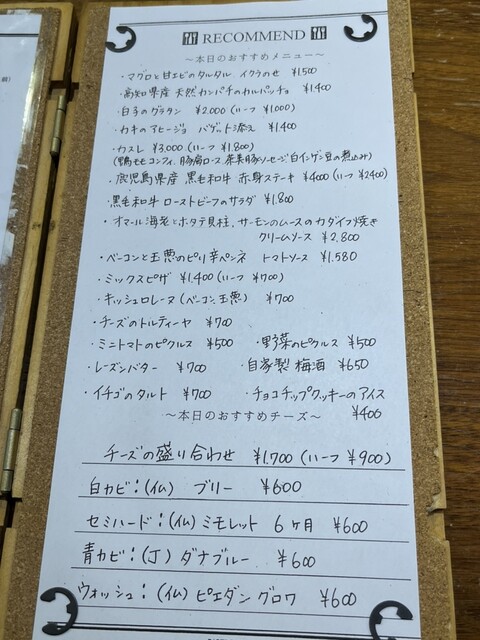 RECOMMEND
～本日のおすすめメニュー～
・マグロと甘エビのタルタル イクラのせ ¥1.500
・高知県産 天然カンパチのカルパッチョ ¥1.400
・白子のグラタン ¥2.000 (ハーフ ¥1.000)
・カキのアヒージョ バゲット添え ¥1.400
・カスレ ¥3.000 (ハーフ ¥1.800)
(鴨ももコンフィ、豚肩ロース 茶美豚ソーセージ 白インゲン豆の煮込み)
・鹿児島県産 黒毛和牛 赤身ステーキ ¥4000 (ハーフ ¥2400)
・黒毛和牛 ローストビーフのサラダ ¥1.800
・オマール海老とホタテ貝柱、サーモンのムースのカダイフ焼き
クリームソース ¥2.800
・ベーコンと玉葱のピリ辛ペンネ トマトソース ¥1.580
・ミックスピザ ¥1.400 (ハーフ ¥700)
・キッシュロレーヌ (ベーコン、玉葱) ¥700
・チーズのトルティーヤ ¥700
・ミニトマトのピクルス ¥500 ・野菜のピクルス ¥500
・レーズンバター ¥700 ・自家製 梅酒 ¥650
・イチゴのタルト ¥700 ・チョコチップクッキーのアイス
¥400
～本日のおすすめチーズ～
チーズの盛り合わせ ¥1.700 (ハーフ ¥900)
白カビ：(仏) ブリー ¥600
セミハード：(仏) ミモレット 6ヶ月 ¥600
青カビ：(丁) ダナブルー ¥600
ウォッシュ：(仏) ピエダングロワ ¥600